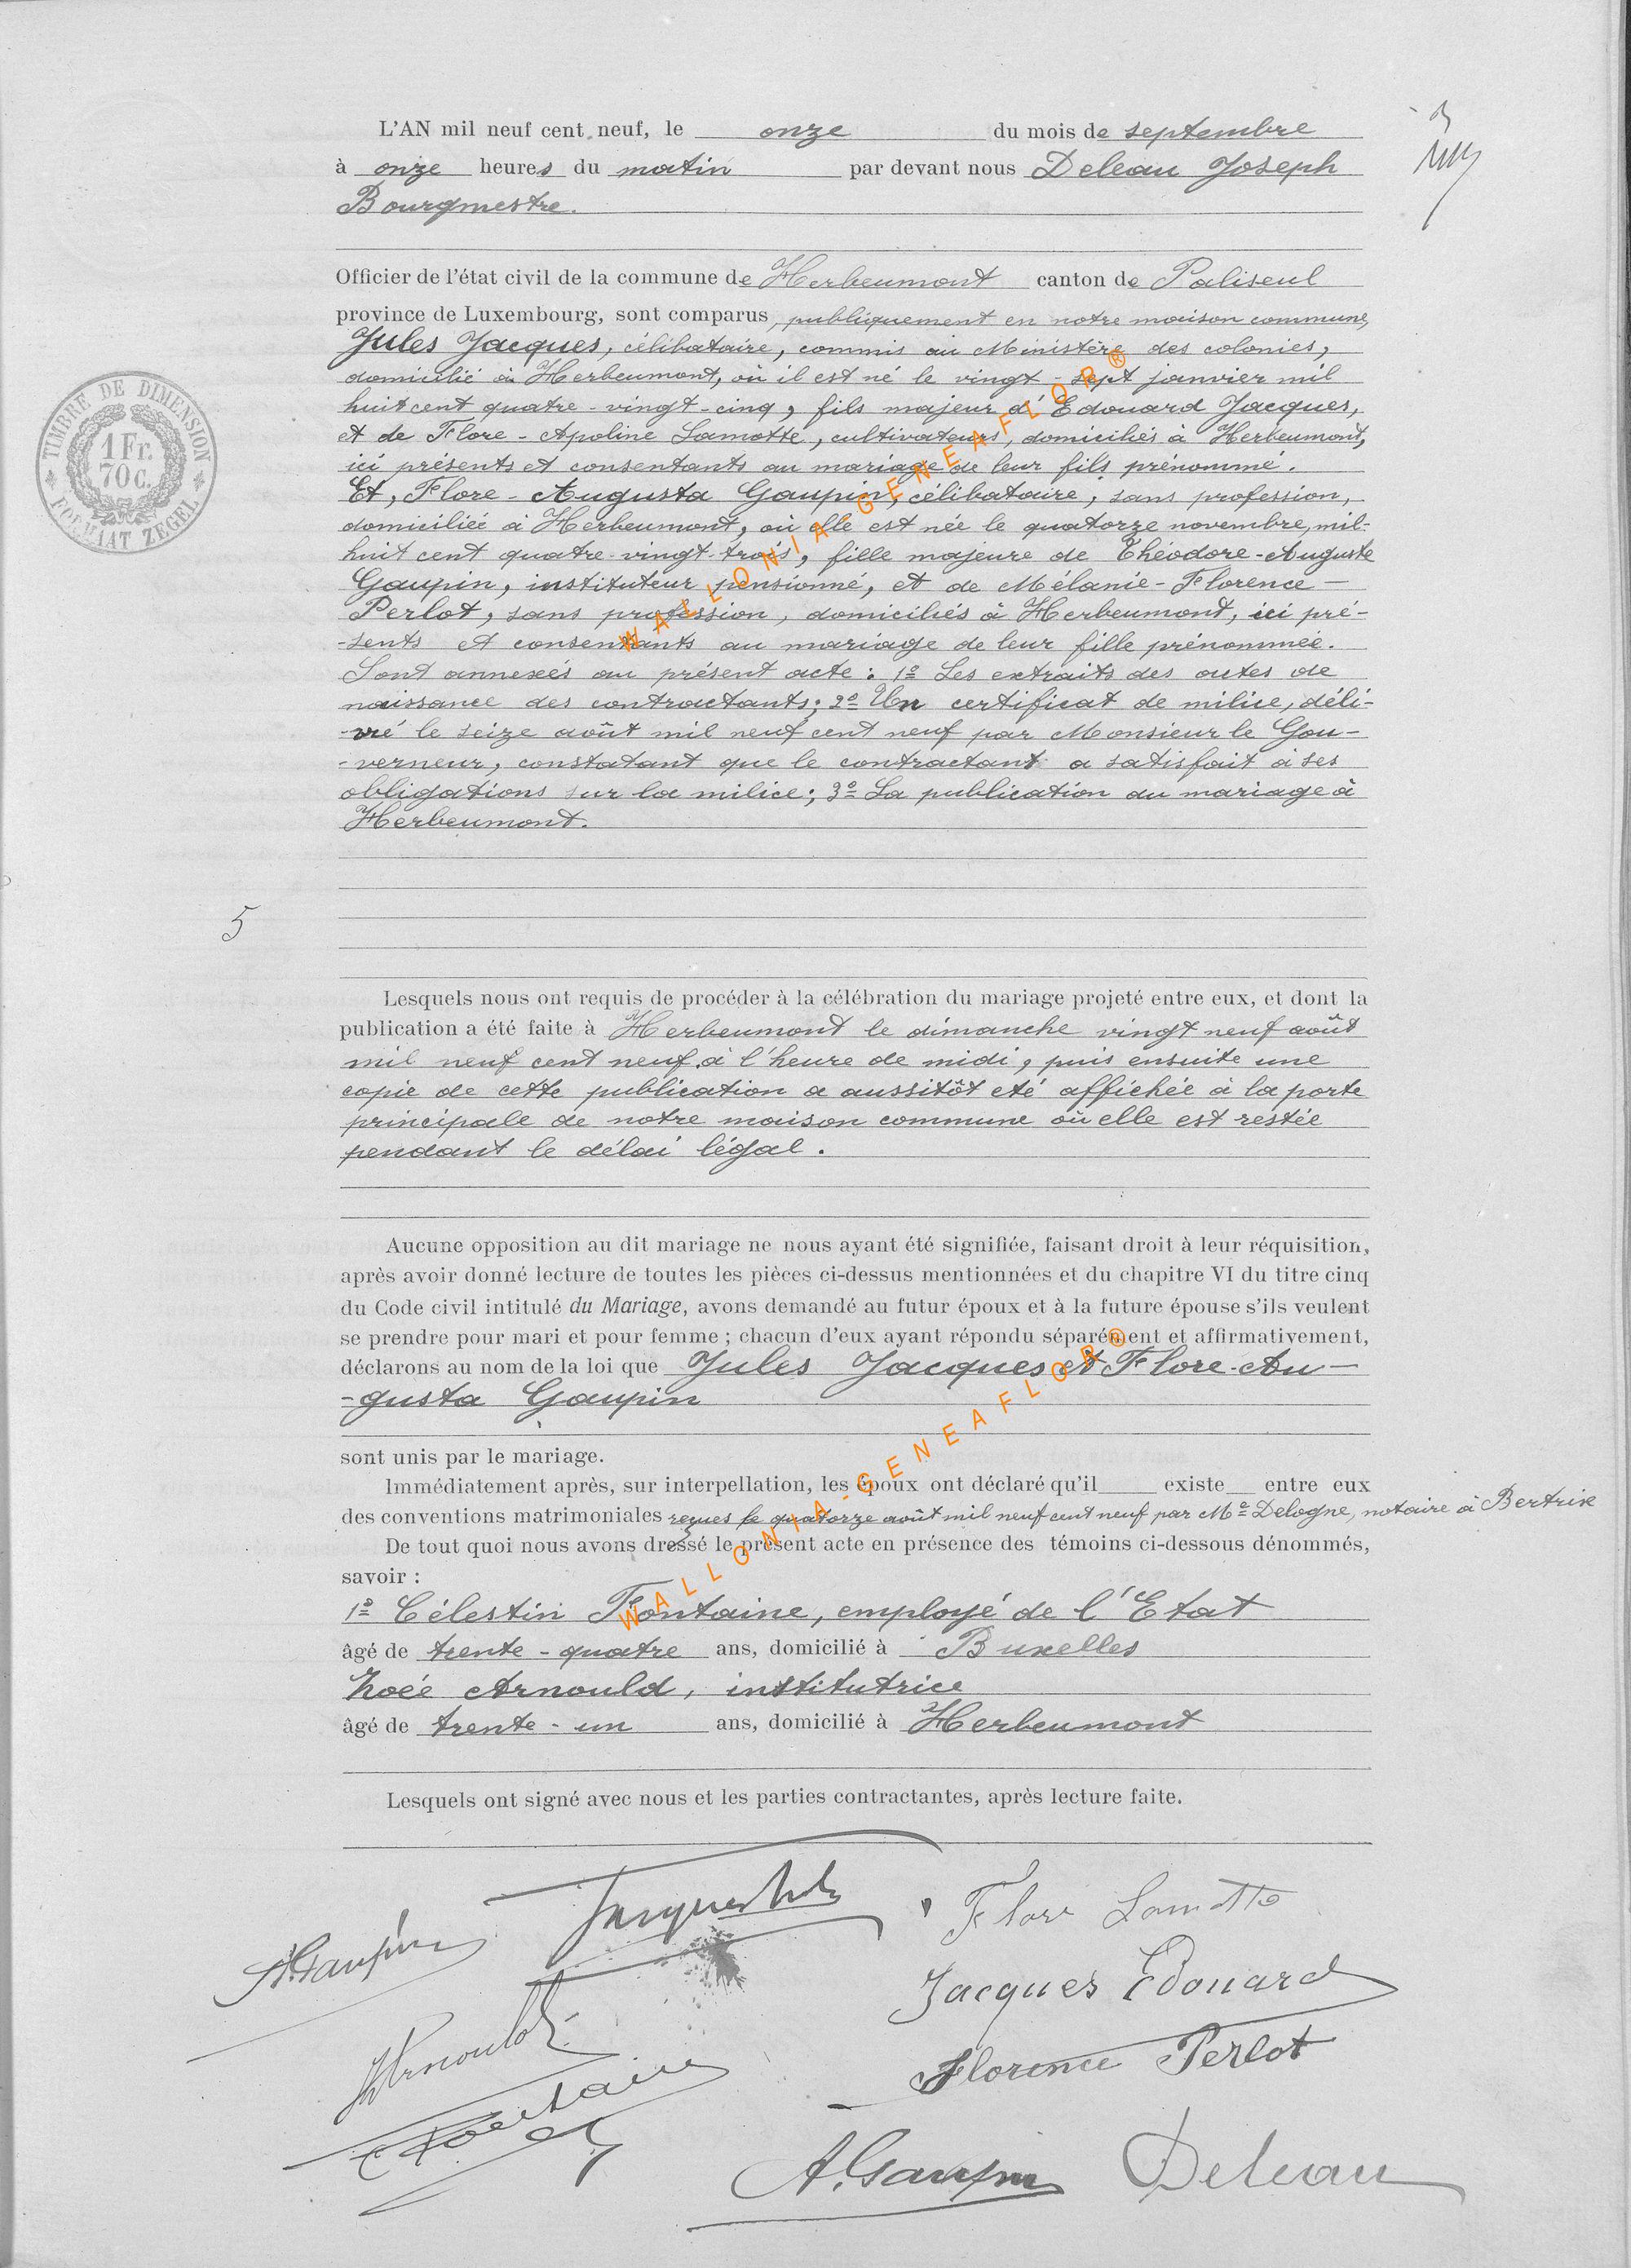 L'AN mil neuf cent neuf, le onze du mois de septembre
à onze heures du matin par devant nous Deleau Joseph
Bourgmestre.
Officier de l'état civil de la commune de Herbeumont canton de Paliseul
province de Luxembourg, sont comparus, publiquement en notre maison commune,
Jules Jacques, célibataire, commis au Ministère des colonies,
domicilié à Herbeumont, où il est né le vingt-sept janvier mil
huit cent quatre-vingt-cinq, fils majeur d'Edouard Jacques,
et de Flore-Apoline Lamotte, cultivateurs, domiciliés à Herbeumont,
ici présents et consentants au mariage de leur fils prénommé.
Et, Flore-Augusta Gaupin, célibataire, sans profession,
domiciliée à Herbeumont, où elle est née le quatorze novembre, mil-
huit cent quatre-vingt-trois, fille majeure de Théodore-Auguste
Gaupin, instituteur pensionné, et de Mélanie-Florence-
Perlot, sans profession, domiciliés à Herbeumont, ici pré-
-sents et consentants au mariage de leur fille prénommée.
Sont annexés au présent acte: 1º Les extraits des actes de
naissance des contractants; 2º Un certificat de milice, déli-
-vré le seize août mil neuf cent neuf par Monsieur le Gou-
-verneur, constatant que le contractant a satisfait à ses
obligations sur la milice; 3º La publication du mariage à
Herbeumont.
TIMBRE DE DIMENSION
1 Fr.
70 c.
FORMAAT ZEGEL
5
Lesquels nous ont requis de procéder à la célébration du mariage projeté entre eux, et dont la
publication a été faite à Herbeumont le dimanche vingt neuf août
mil neuf cent neuf, à l'heure de midi, puis ensuite une
copie de cette publication a aussitôt eté affichée à la porte
principale de notre maison commune où elle est restée
pendant le délai légal.
Aucune opposition au dit mariage ne nous ayant été signifiée, faisant droit à leur réquisition,
après avoir donné lecture de toutes les pièces ci-dessus mentionnées et du chapitre VI du titre cinq
du Code civil intitulé du Mariage, avons demandé au futur époux et à la future épouse s'ils veulent
se prendre pour mari et pour femme ; chacun d'eux ayant répondu séparément et affirmativement,
déclarons au nom de la loi que Jules Jacques et Flore-Au-
-gusta Gaupin
sont unis par le mariage.
Immédiatement après, sur interpellation, les époux ont déclaré qu'il existe entre eux
des conventions matrimoniales reçues le quatorze août mil neuf cent neuf par Mº Delogne, notaire à Bertrix
De tout quoi nous avons dressé le présent acte en présence des témoins ci-dessous dénommés,
savoir :
1º Célestin Fontaine, employé de l'Etat
âgé de trente-quatre ans, domicilié à Buxelles
Zoée Arnould, institutrice
âgé de trente-un ans, domicilié à Herbeumont
Lesquels ont signé avec nous et les parties contractantes, après lecture faite.
Jacques Jules
Flore Lamotte
Gaupin
Jacques Edouard
Arnould
Florence Perlot
C Fontaine
A. Gaupin
Deleau
WALLONIA-GENEAFLOR®
WALLONIA-GENEAFLOR®